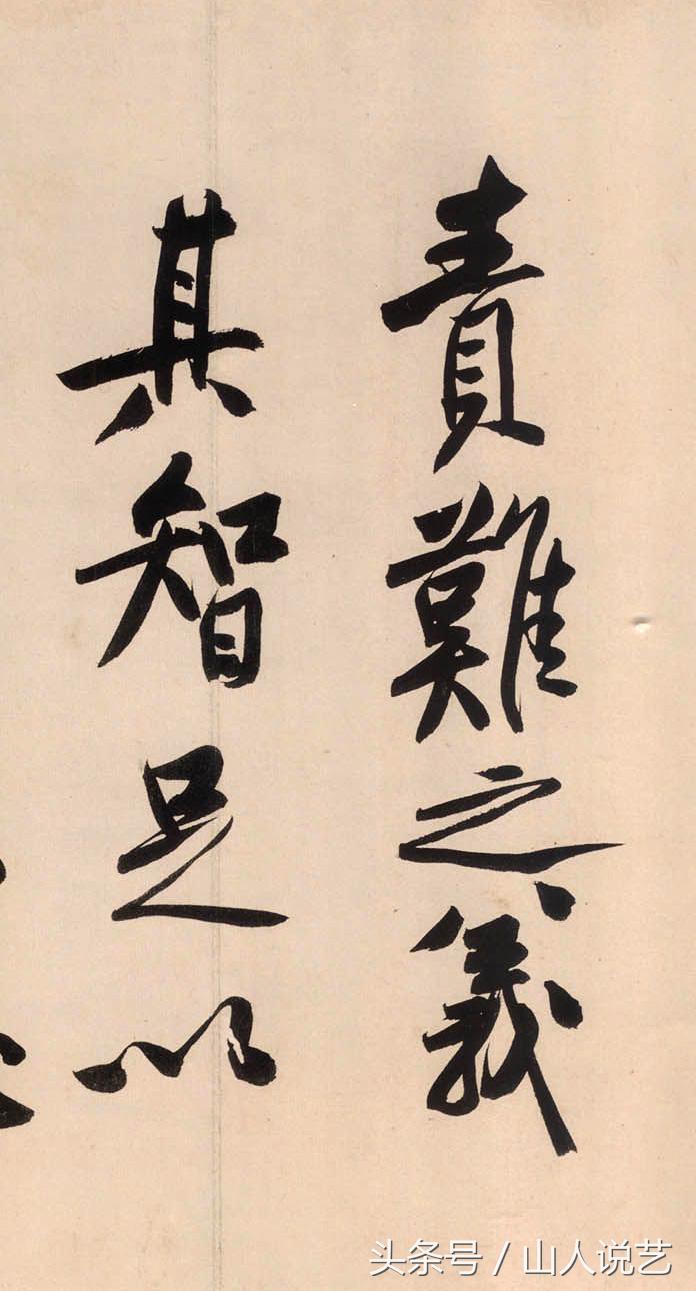 責難之義
其智足以
头条号 / 山人说艺